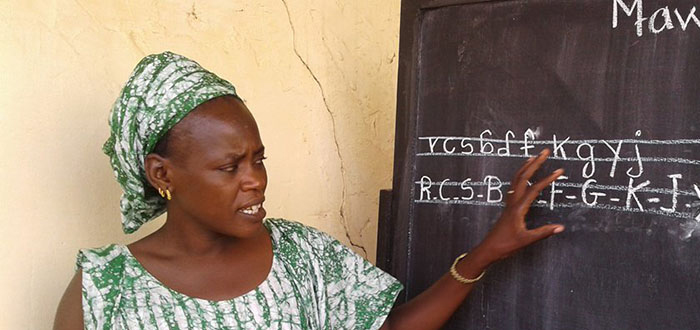 Maw
rcsbdfkgyj
R-C-S-B-D-F-G-K-J-